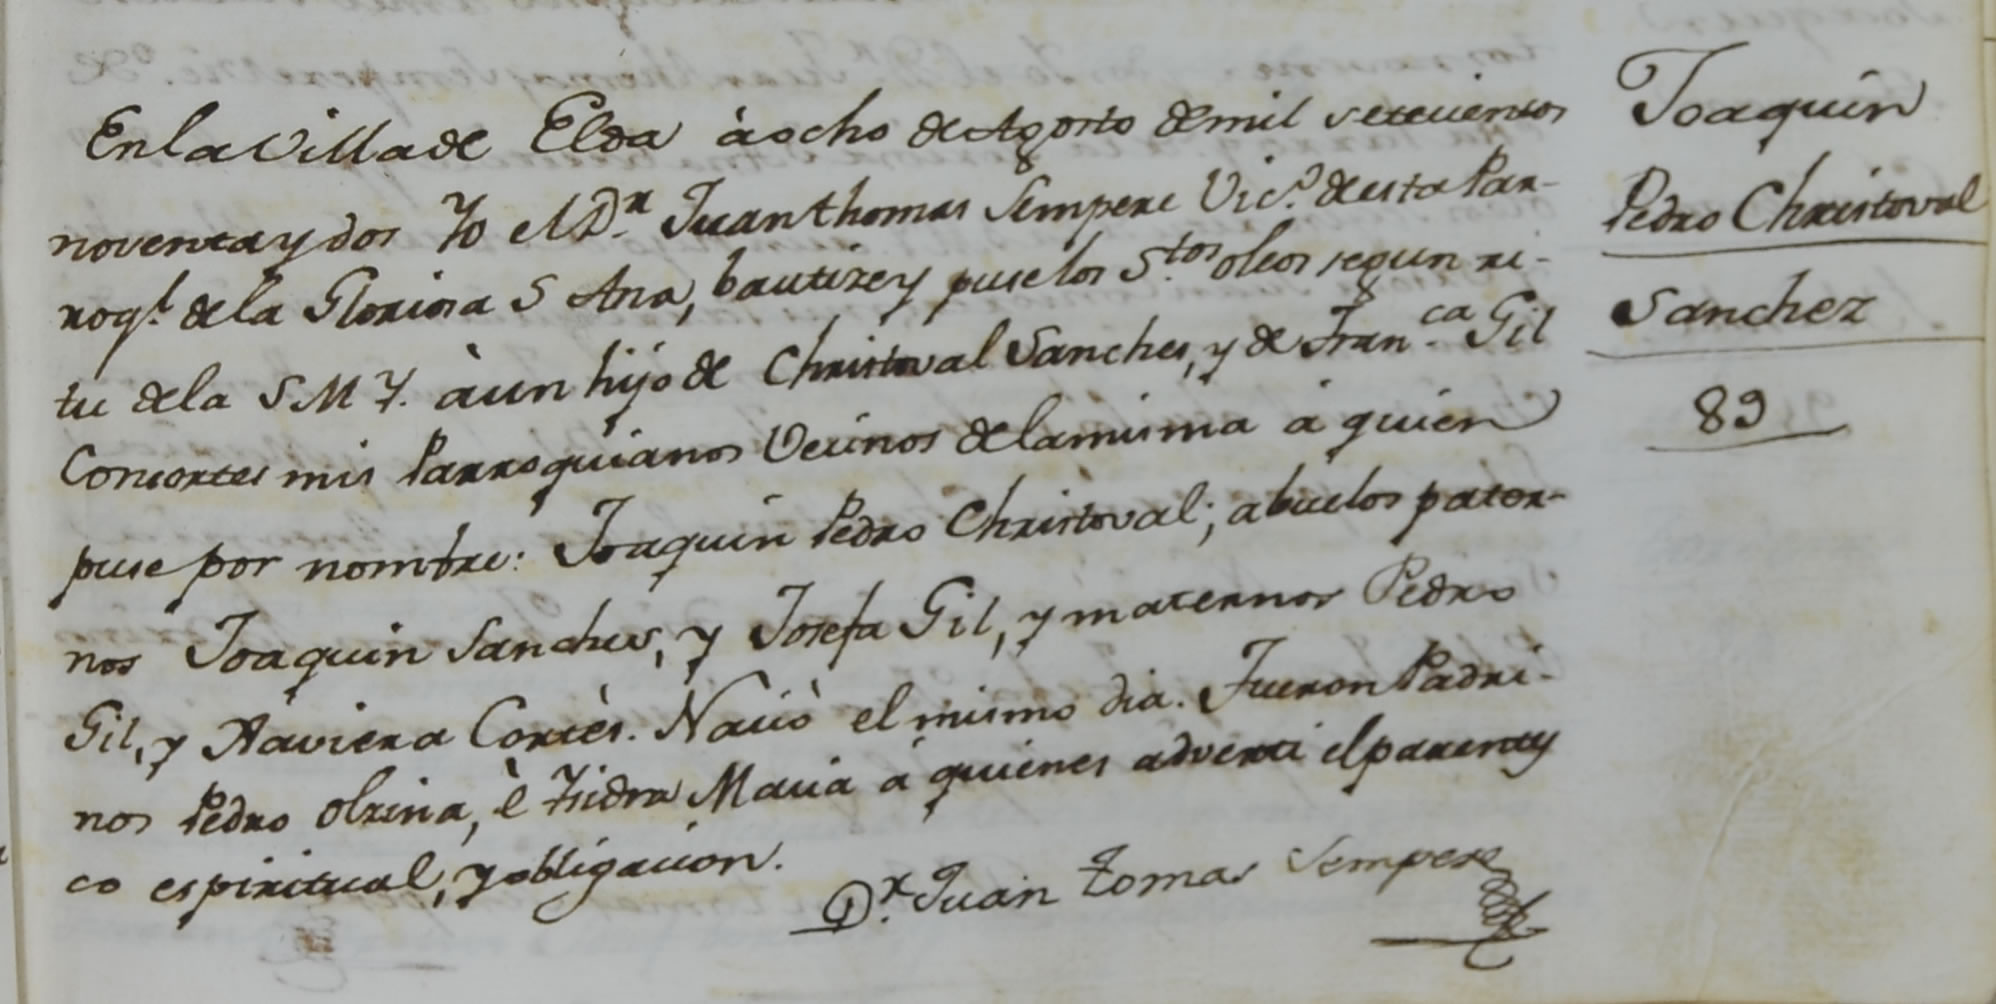 En la Villa de Elda à ocho de Agosto de mil setecientos
noventa y dos Yo el Dr. Juan thomas Sempere Vic.o de esta Par-
roql. de la Gloriosa S Ana, bautize y puse los S.tos oleos segun ri-
tu de la S M Y. à un hijo de Christoval Sanches, y de Fran.ca Gil
Consortes mis Parroquianos Vecinos de la misma á quien
puse por nombre: Joaquin Pedro Christoval; abuelos pater-
nos Joaquin Sanches, y Josefa Gil, y maternos Pedro
Gil, y Xaviera Cortès. Naciò el mismo dia. Fueron Padri-
nos Pedro Olzina, è Ysidra Macia á quienes adverti el parentes
co espiritual, y obligacion.
Dr. Juan tomas Sempere
Joaquin
Pedro Christoval
Sanchez
89